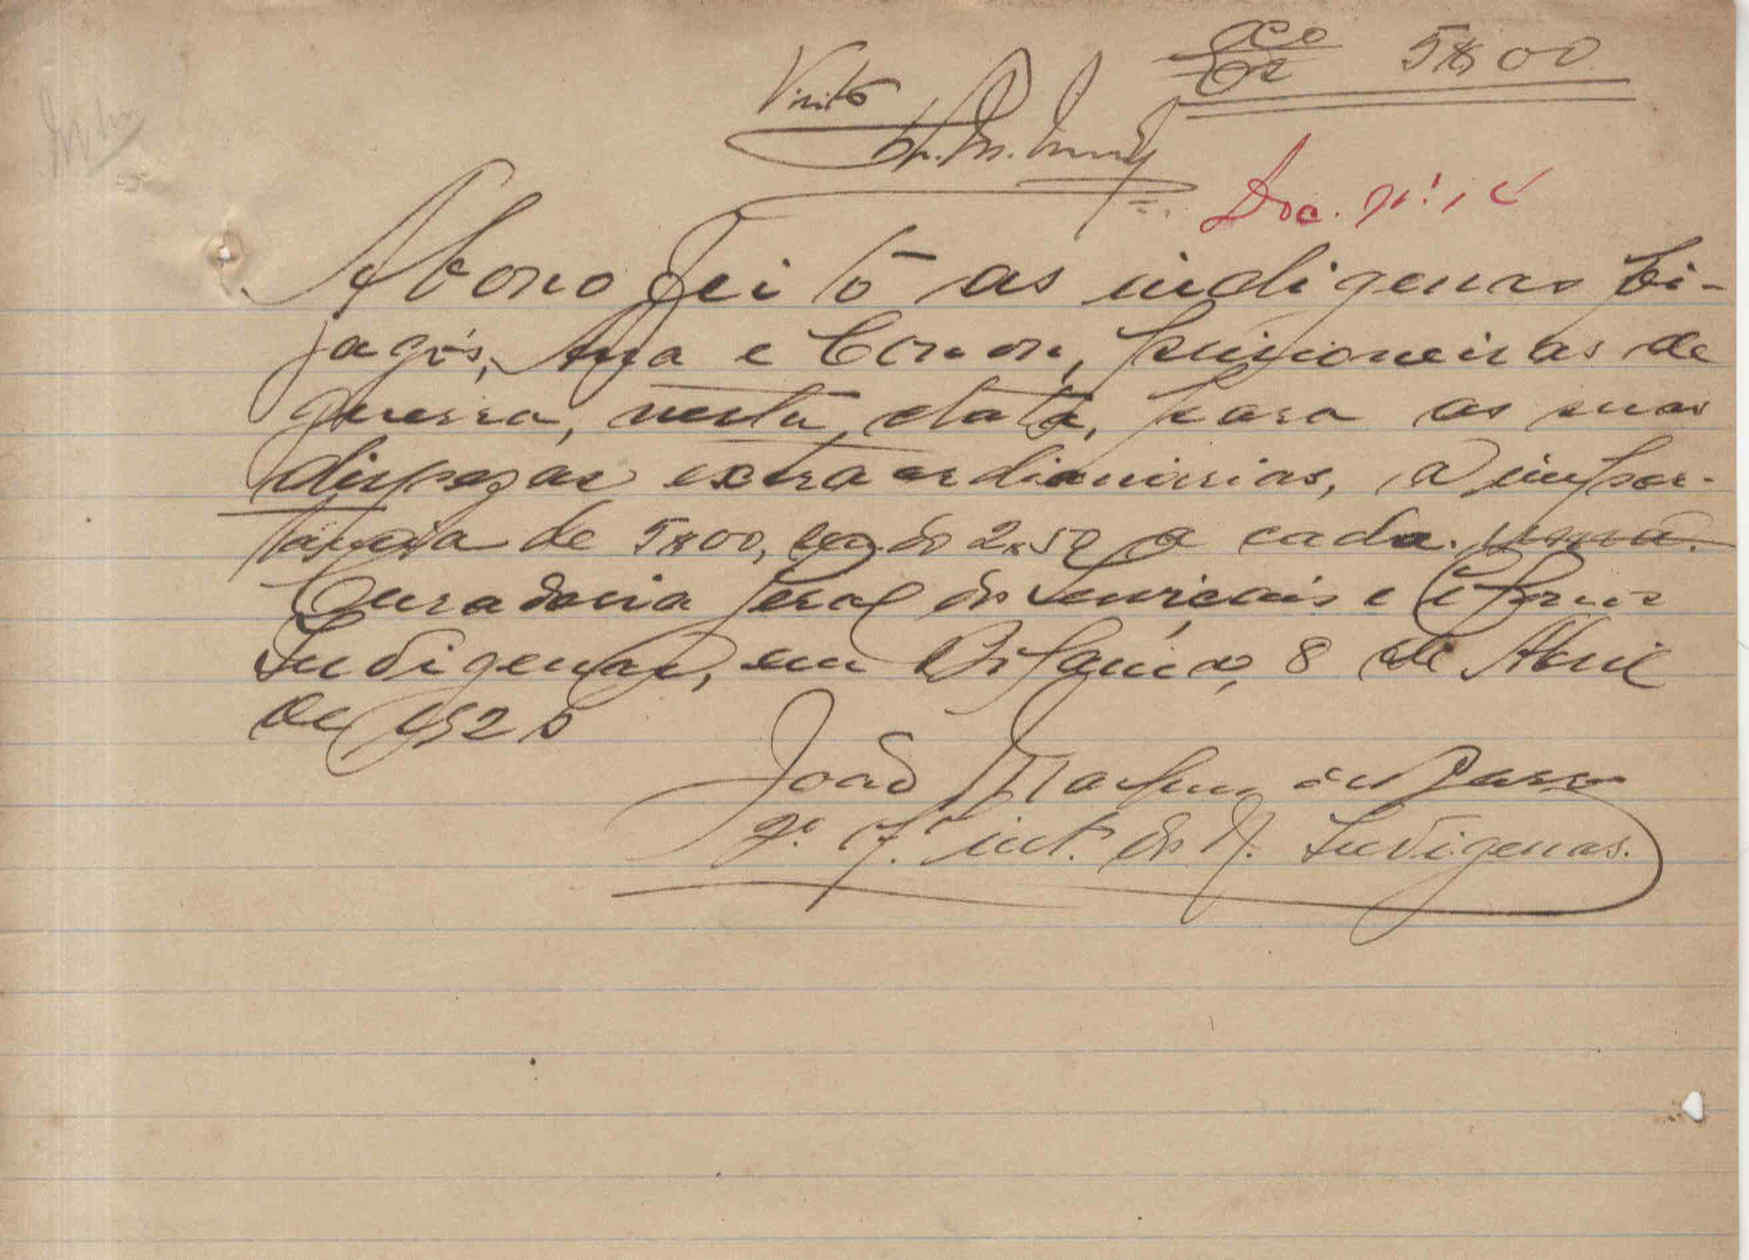 5$00
Visto
Doc. nº 14
Abono feito as indigenas bi-
jagós, Aja e Conon, prisioneiras de
guerra, nesta data, para as suas
dispezas extraordinarias, a impor-
tancia de 5$00, sendo 2$50 a cada uma.
Curadoria Geral dos Serviçais e Colonos
Indigenas, em Bolama, 8 de Abril
de 1925
João
int. dos N. Indigenas.